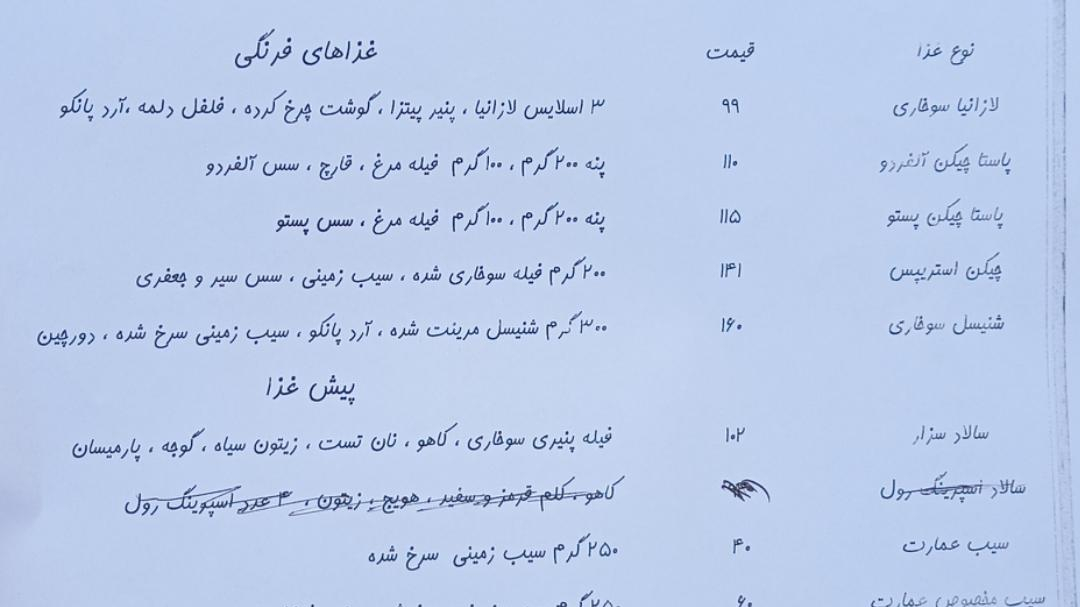 نوع غذا قیمت غذاهای فرنگی
لازانیا سوخاری ۹۹ ۳ اسلایس لازانیا ، پنیر پیتزا ، گوشت چرخ کرده ، فلفل دلمه ،آرد پانکو
پاستا چیکن آلفردو ۱۱۰ پنه ۲۰۰ گرم ، ۱۰۰ گرم فیله مرغ ، قارچ ، سس آلفردو
پاستا چیکن پستو ۱۱۵ پنه ۲۰۰ گرم ، ۱۰۰ گرم فیله مرغ ، سس پستو
چیکن استریپس ۱۴۱ ۲۰۰ گرم فیله سوخاری شده ، سیب زمینی ، سس سیر و جعفری
شنیسل سوخاری ۱۶۰ ۳۰۰ گرم شنیسل مرینت شده ، آرد پانکو ، سیب زمینی سرخ شده ، دورچین
پیش غذا
سالاد سزار ۱۰۲ فیله پنیری سوخاری ، کاهو ، نان تست ، زیتون سیاه ، گوجه ، پارمیسان
سالاد اسپرینگ رول کاهو ، کلم قرمز و سفید ، هویج ، زیتون ، ۴ عدد اسپرینگ رول
سیب عمارت ۴۰ ۲۵۰ گرم سیب زمینی سرخ شده
سیب مخصوص عمارت ۶۰ ۲۵۰ گرم